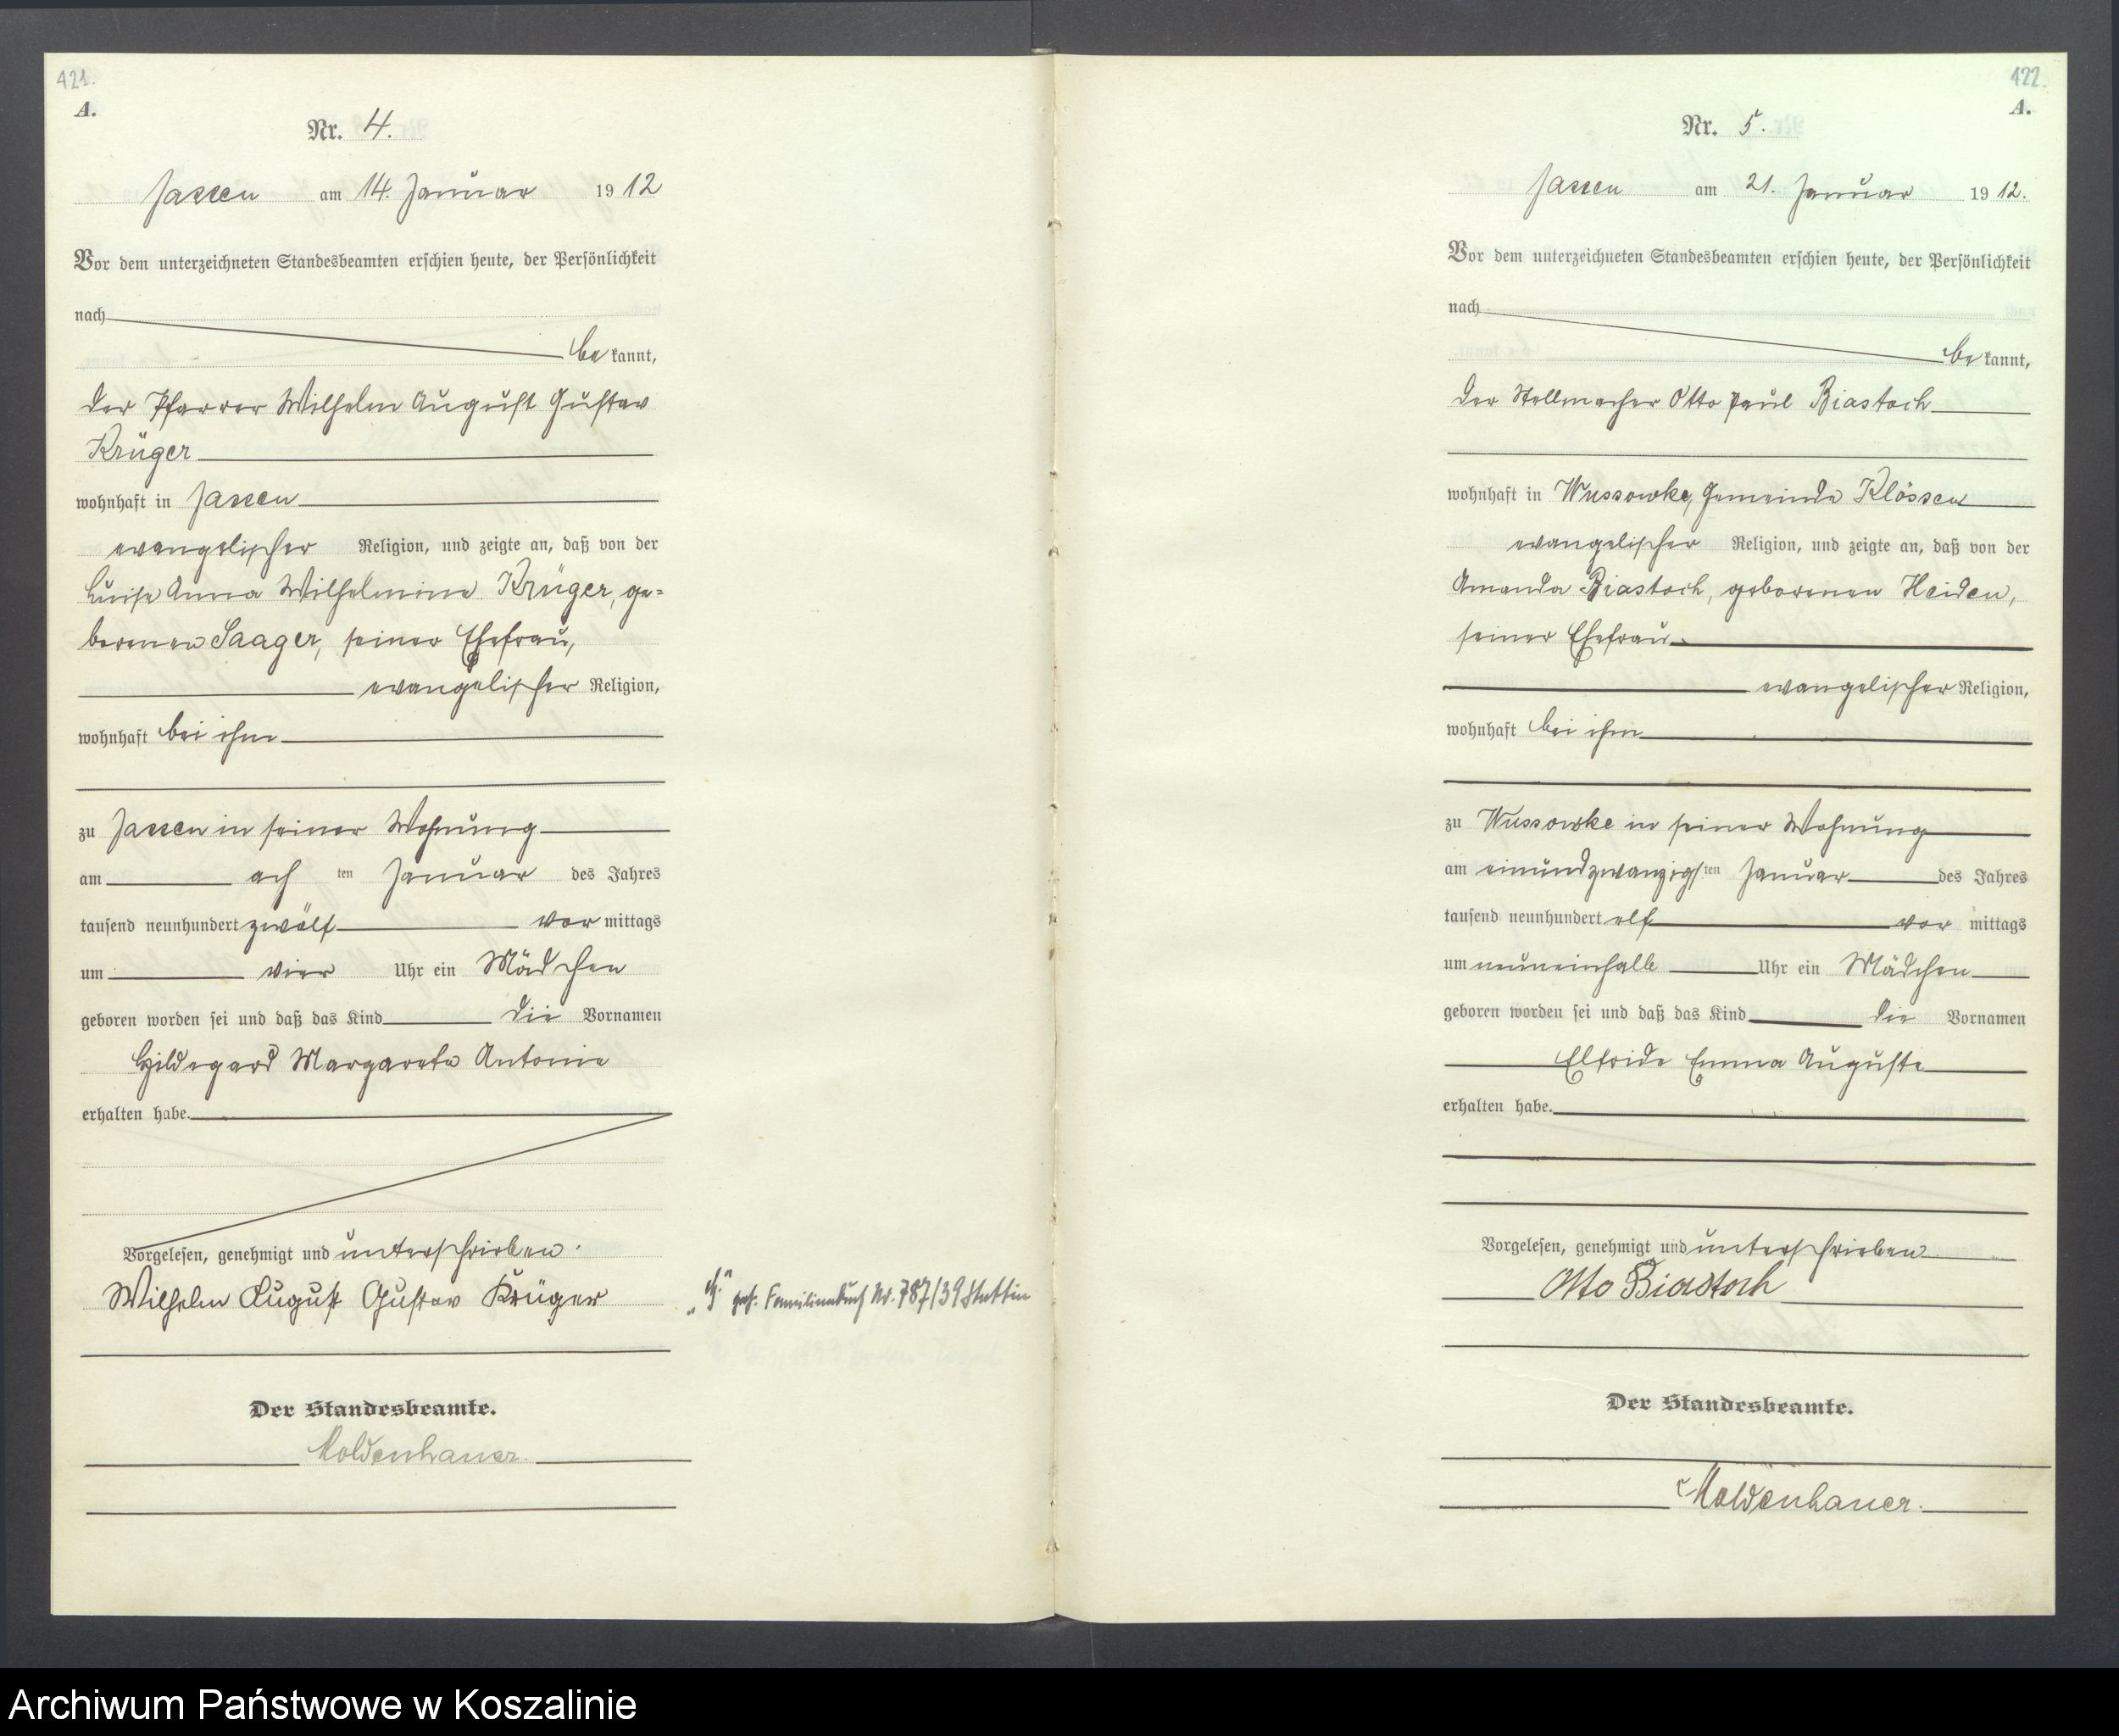 421.
A.
Nr. 4.
Jassen am 14. Januar 1912
Vor dem unterzeichneten Standesbeamten erschien heute, der Persönlichkeit
nach
be kannt,
der Pfarrer Wilhelm August Gustav
Krüger
wohnhaft in Jassen
evangelischer Religion, und zeigte an, daß von der
Luise Anna Wilhelmine Krüger, ge=
borenen Saager, seiner Ehefrau,
evangelischer Religion,
wohnhaft bei ihm
zu Jassen in seiner Wohnung
am ach ten Januar des Jahres
tausend neunhundert zwölf vor mittags
um vier Uhr ein Mädchen
geboren worden sei und daß das Kind die Vornamen
Hildegard Margarete Antonie
erhalten habe.
Vorgelesen, genehmigt und unterschrieben.
Wilhelm August Gustav Krüger
Familienbuch Nr. 787/39 Stettin
Der Standesbeamte.
Moldenhauer.
422.
A.
Nr. 5.
Jassen am 21. Januar 1912.
Vor dem unterzeichneten Standesbeamten erschien heute, der Persönlichkeit
nach
be kannt,
der Stellmacher Otto Paul Biastoch
wohnhaft in Wussowke, Gemeinde Klössen
evangelischer Religion, und zeigte an, daß von der
Amanda Biastoch, geborenen Heiden,
seiner Ehefrau
evangelischer Religion,
wohnhaft bei ihm
zu Wussowke in seiner Wohnung
am einundzwanzigsten Januar des Jahres
tausend neunhundert elf vor mittags
um neuneinhalb Uhr ein Mädchen
geboren worden sei und daß das Kind die Vornamen
Elfride Emma Auguste
erhalten habe.
Vorgelesen, genehmigt und unterschrieben
Otto Biastoch
Der Standesbeamte.
Moldenhauer.
Archiwum Państwowe w Koszalinie